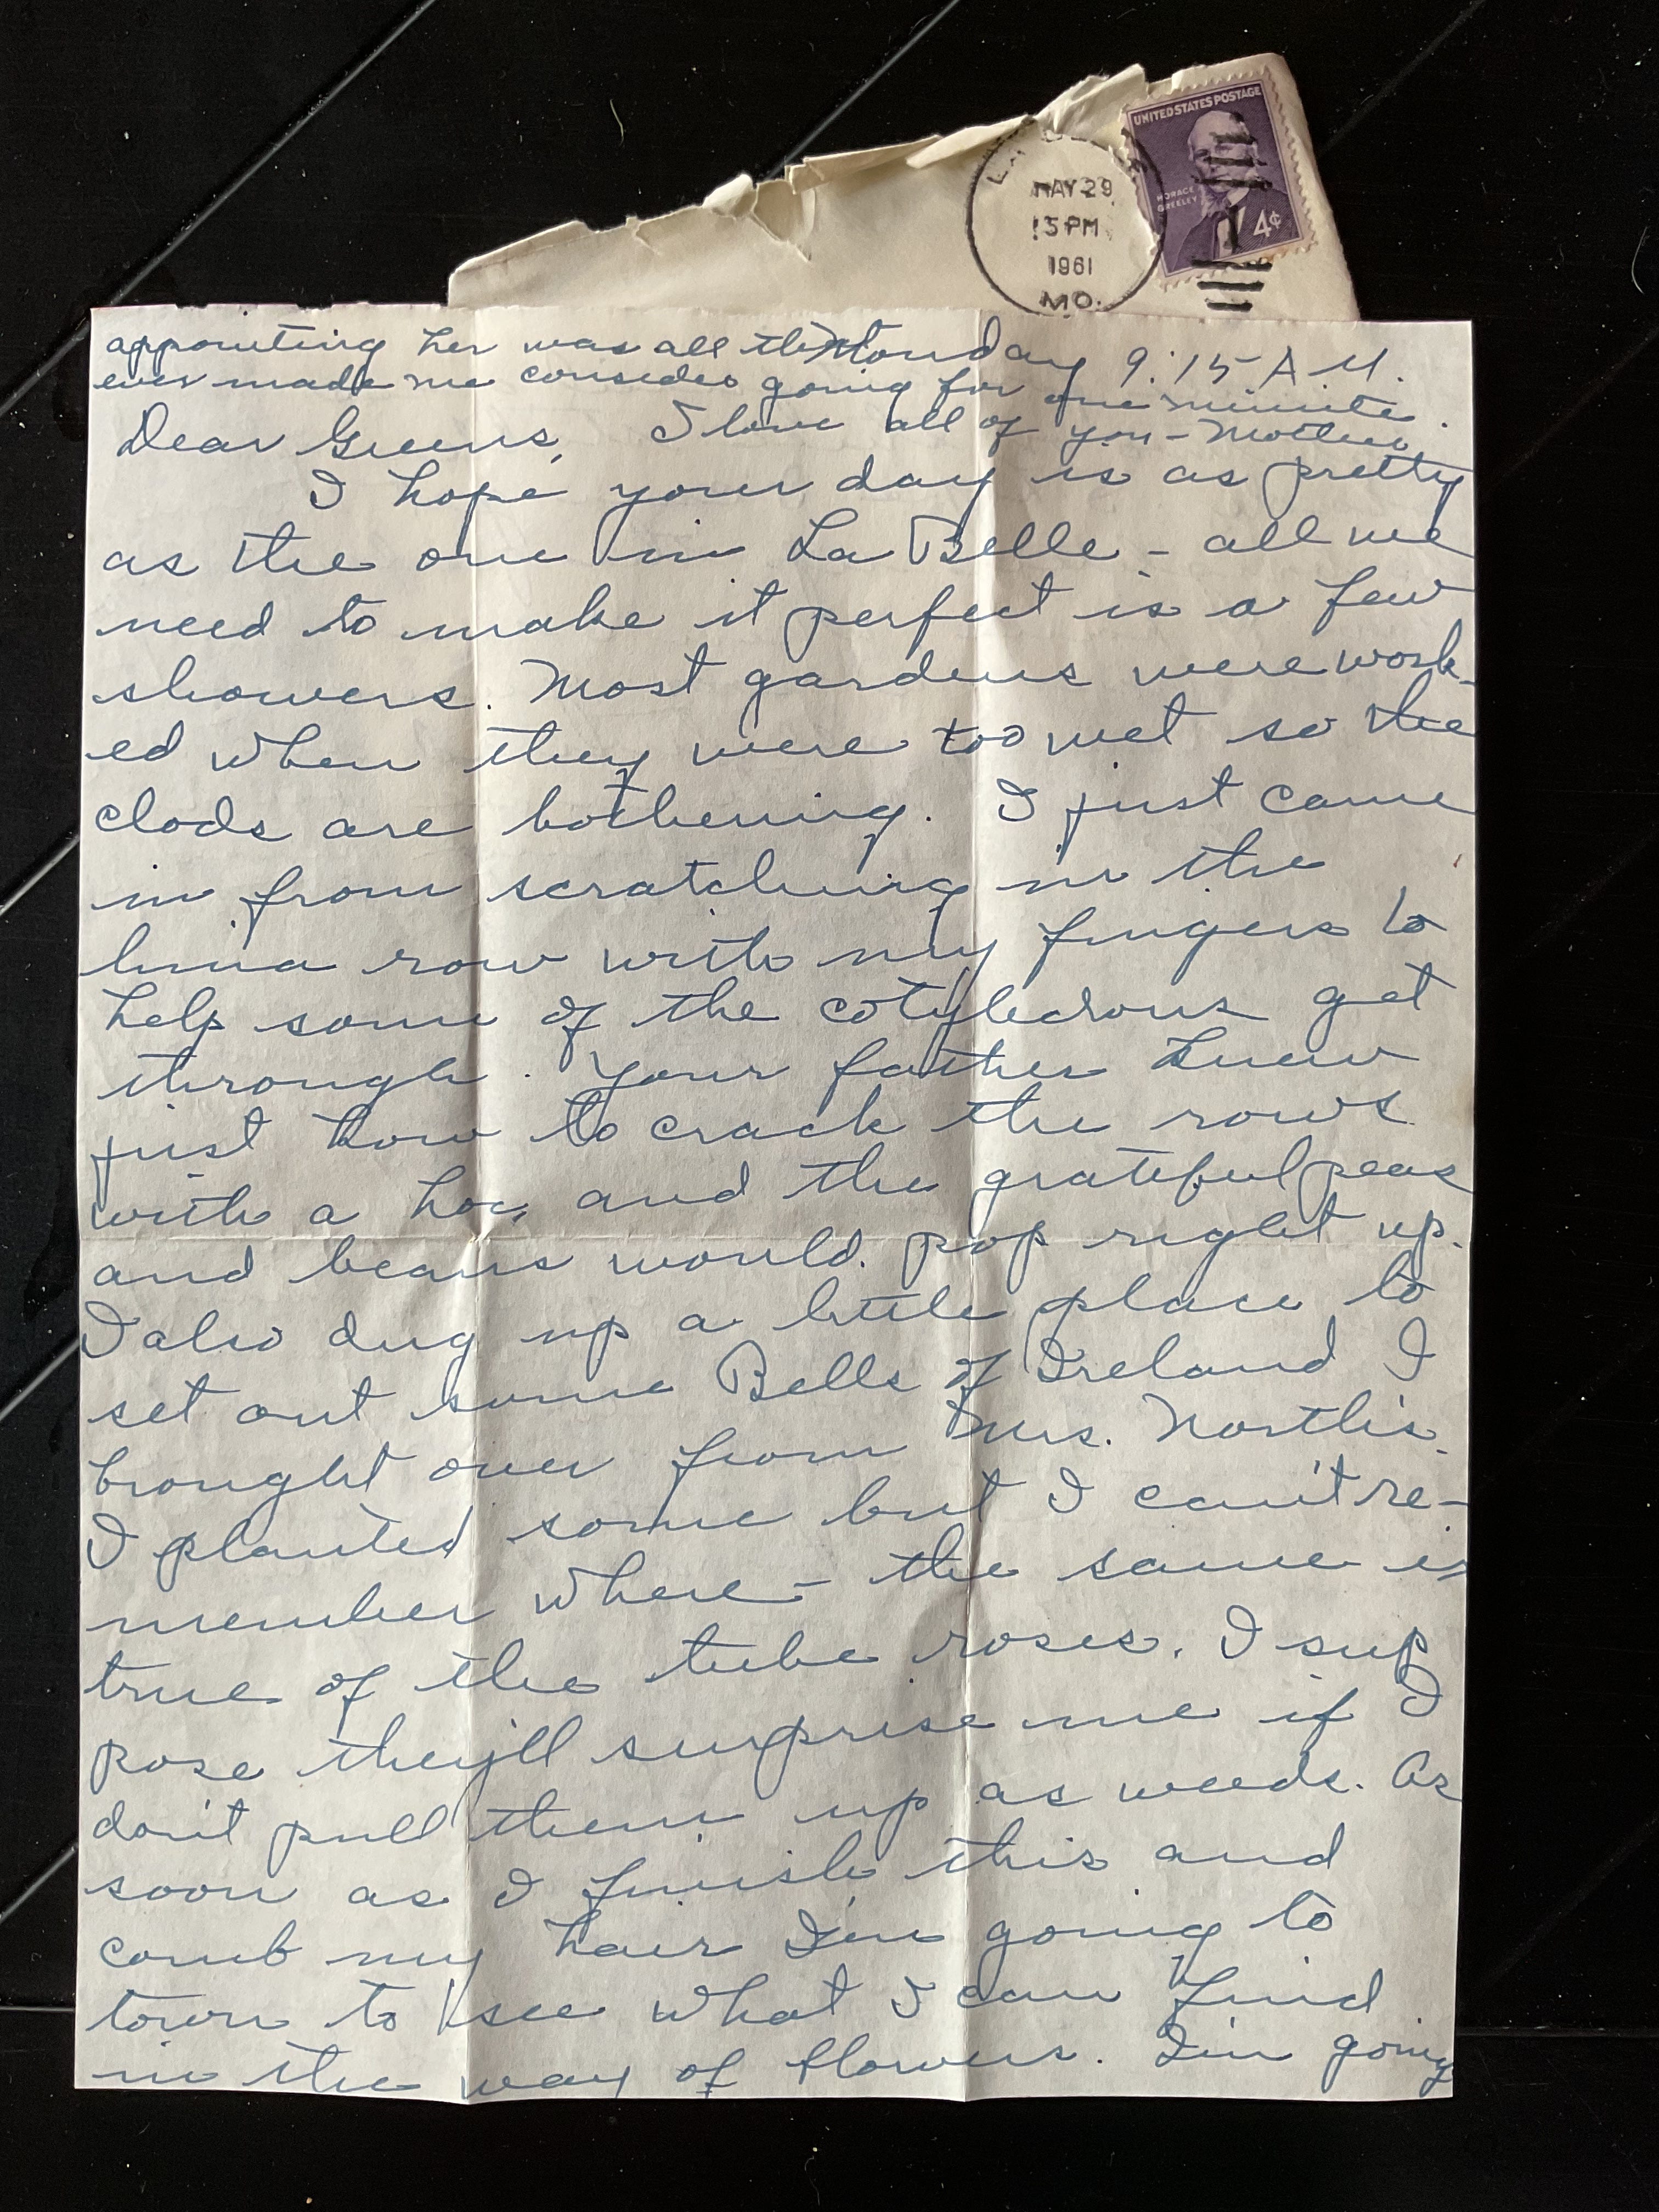 UNITED STATES POSTAGE
HORACE
GREELEY
4¢
MAY 29
5 PM
1961
MO.
Monday 9:15 A.M.
appointing her was all that
ever made me consider going for one minute.
I love all of you - Mother
Dear Greens,
I hope your day is as pretty
as the one in La Belle - all we
need to make it perfect is a few
showers. Most gardens were work-
ed when they were too wet so the
clods are bothering. I just came
in from scratching in the
lima row with my fingers to
help some of the cotyledons get
through. Your father knew
just how to crack the rows
with a hoe, and the grateful peas
and beans would pop right up.
I also dug up a little place to
set out some Bells of Ireland I
brought over from Mrs. North's.
I planted some but I can't re-
member where - the same is
true of the tube roses. I sup
pose they'll surprise me if I
don't pull them up as weeds. As
soon as I finish this and
comb my hair I'm going to
town to see what I can find
in the way of flowers. I'm going